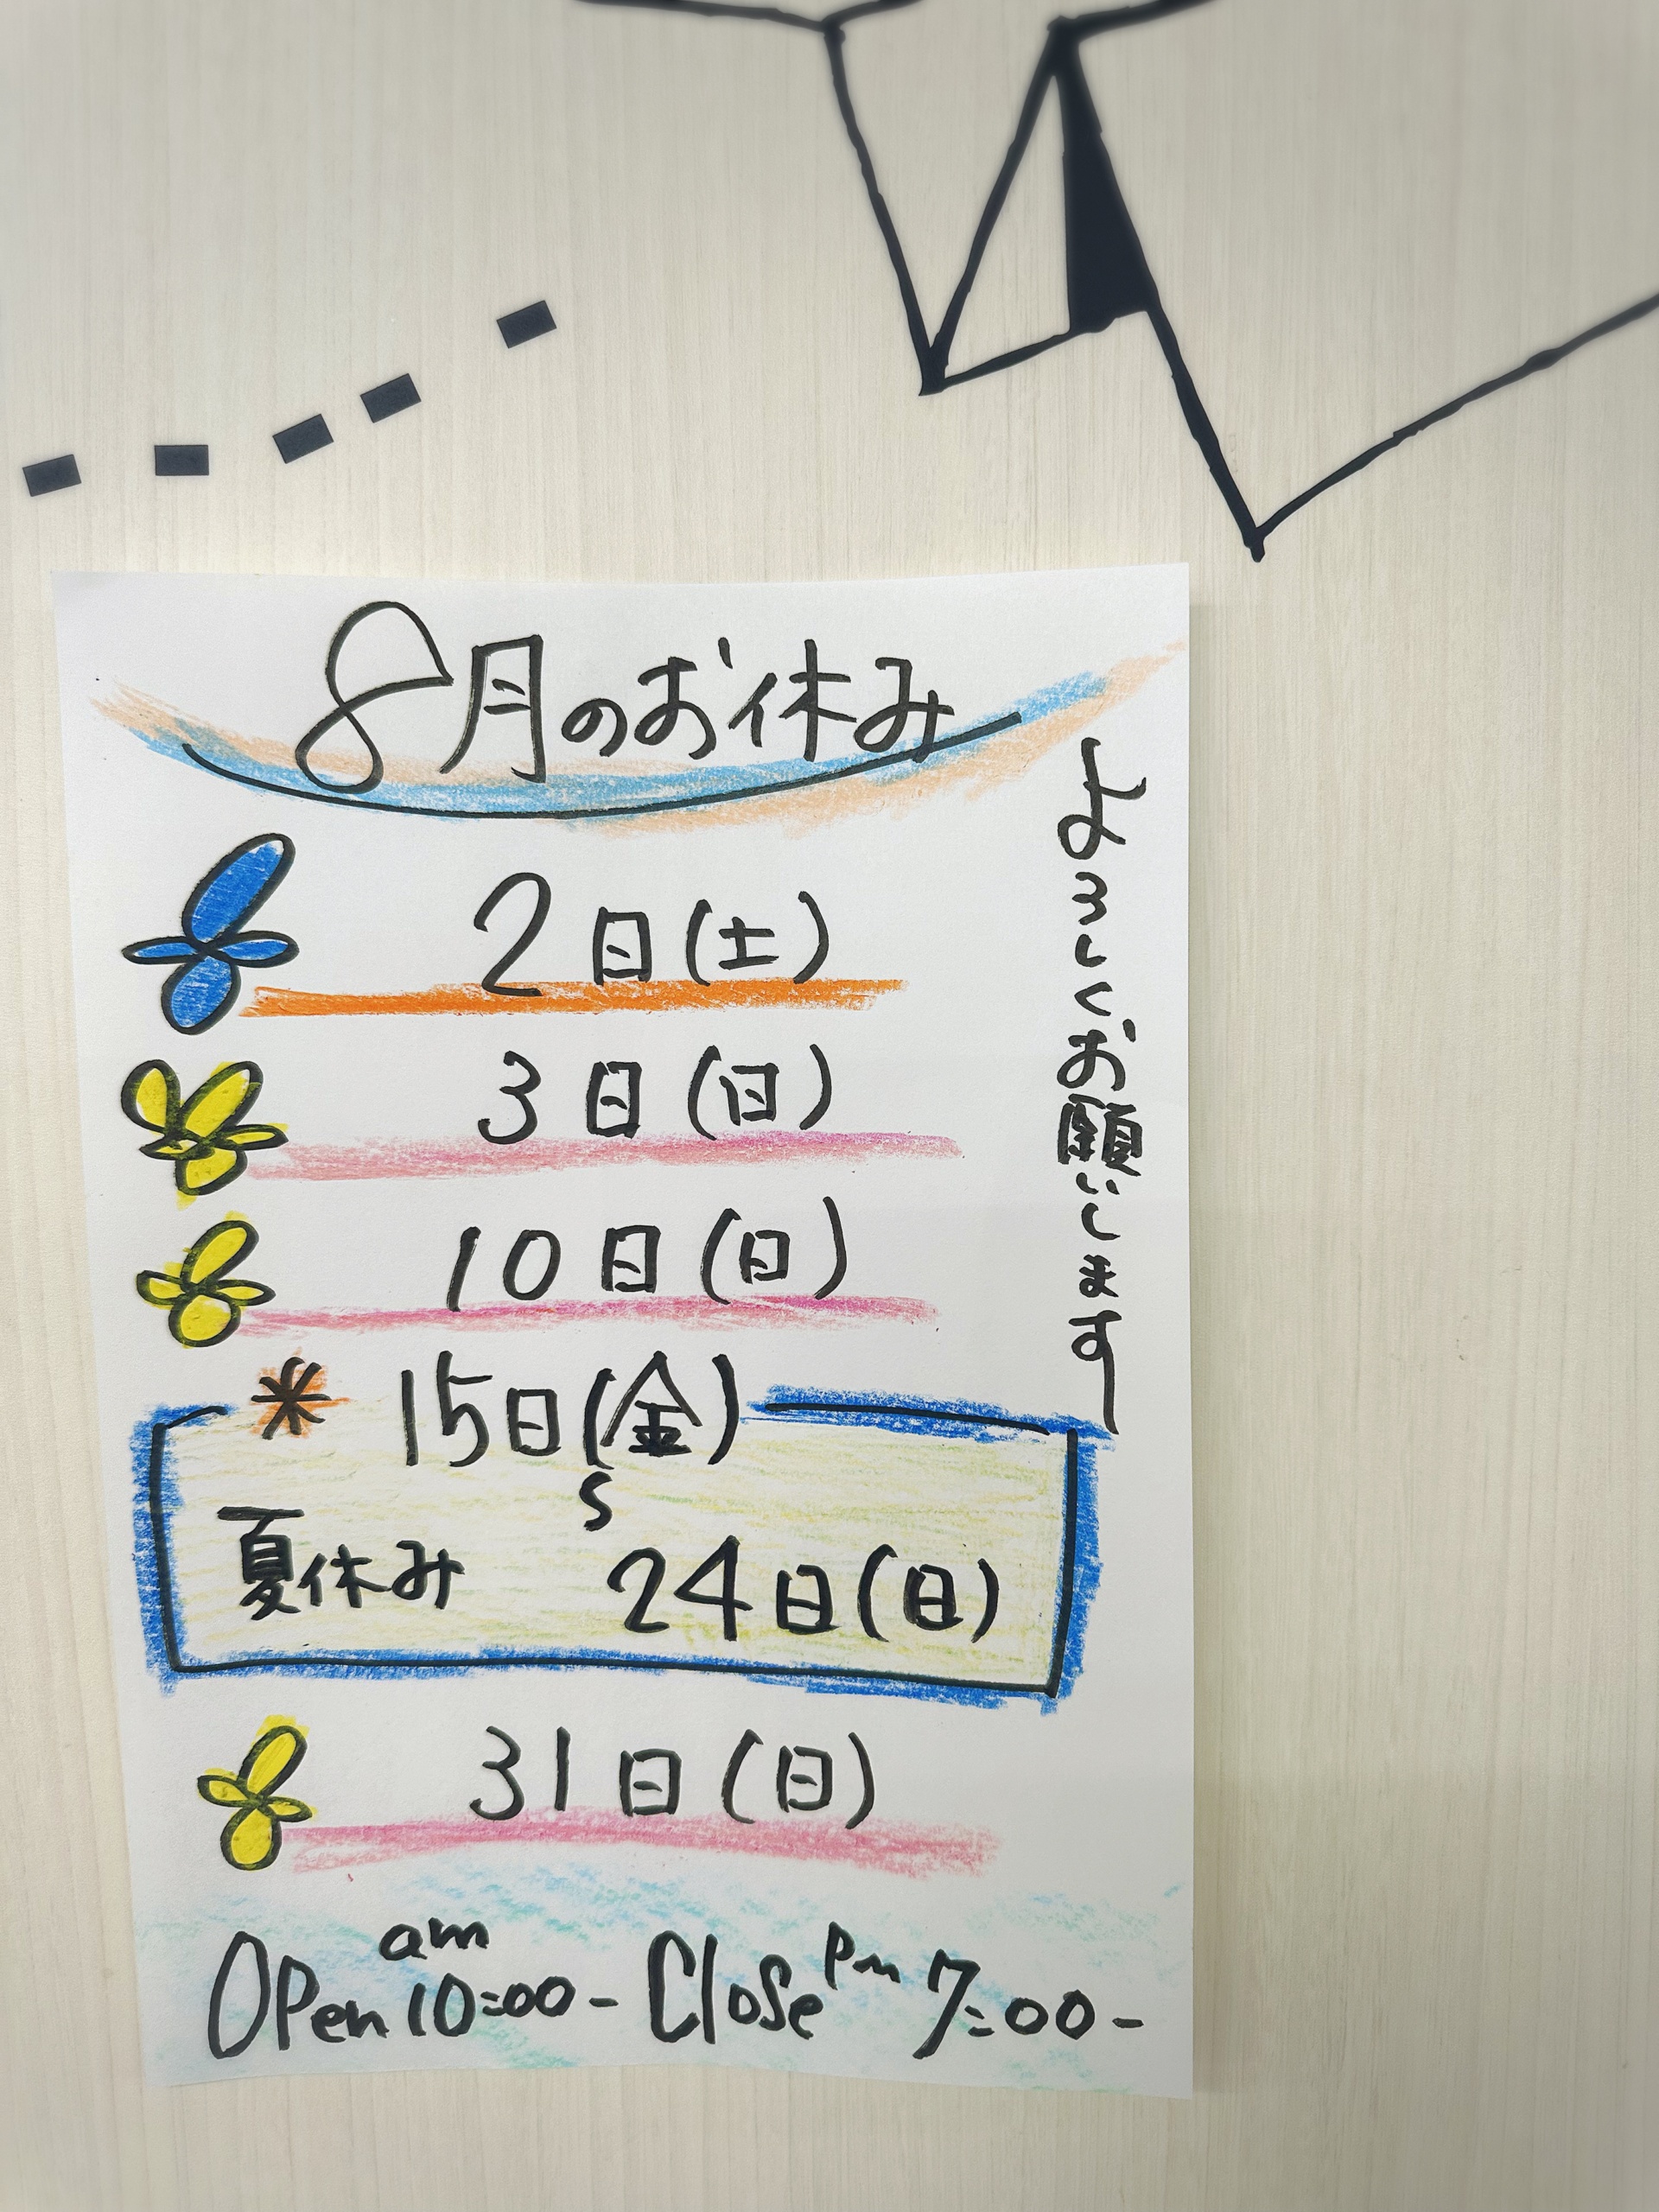 8月のお休み
2日(土)
3日(日)
10日(日)
＊15日(金)
〜
夏休み 24日(日)
31日(日)
Open am 10:00- Close pm 7:00-
よろしくお願いします